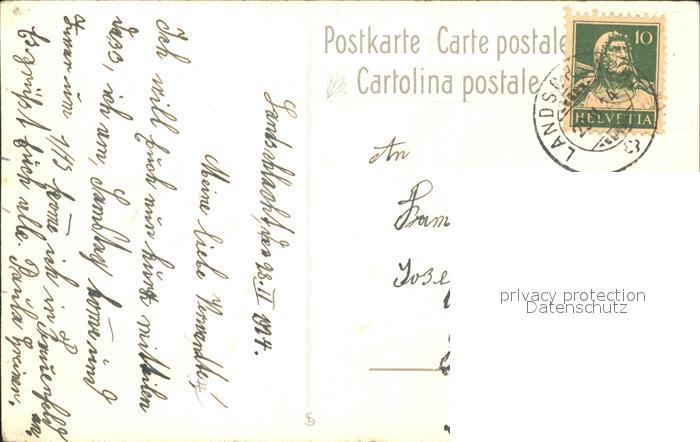 Postkarte Carte postale
Cartolina postale
10
HELVETIA
LANDSCH
An
Fam
Jose
privacy protection
Datenschutz
Landschlacht, den 28. II 1914.
Meine liebe Verwandte!
Ich will Euch nur kurz mitteilen
dass, ich am, Samstag kome und
Zwar um 1/43 kome ich in Frauenfeld an.
Es grüßt Euch alle.